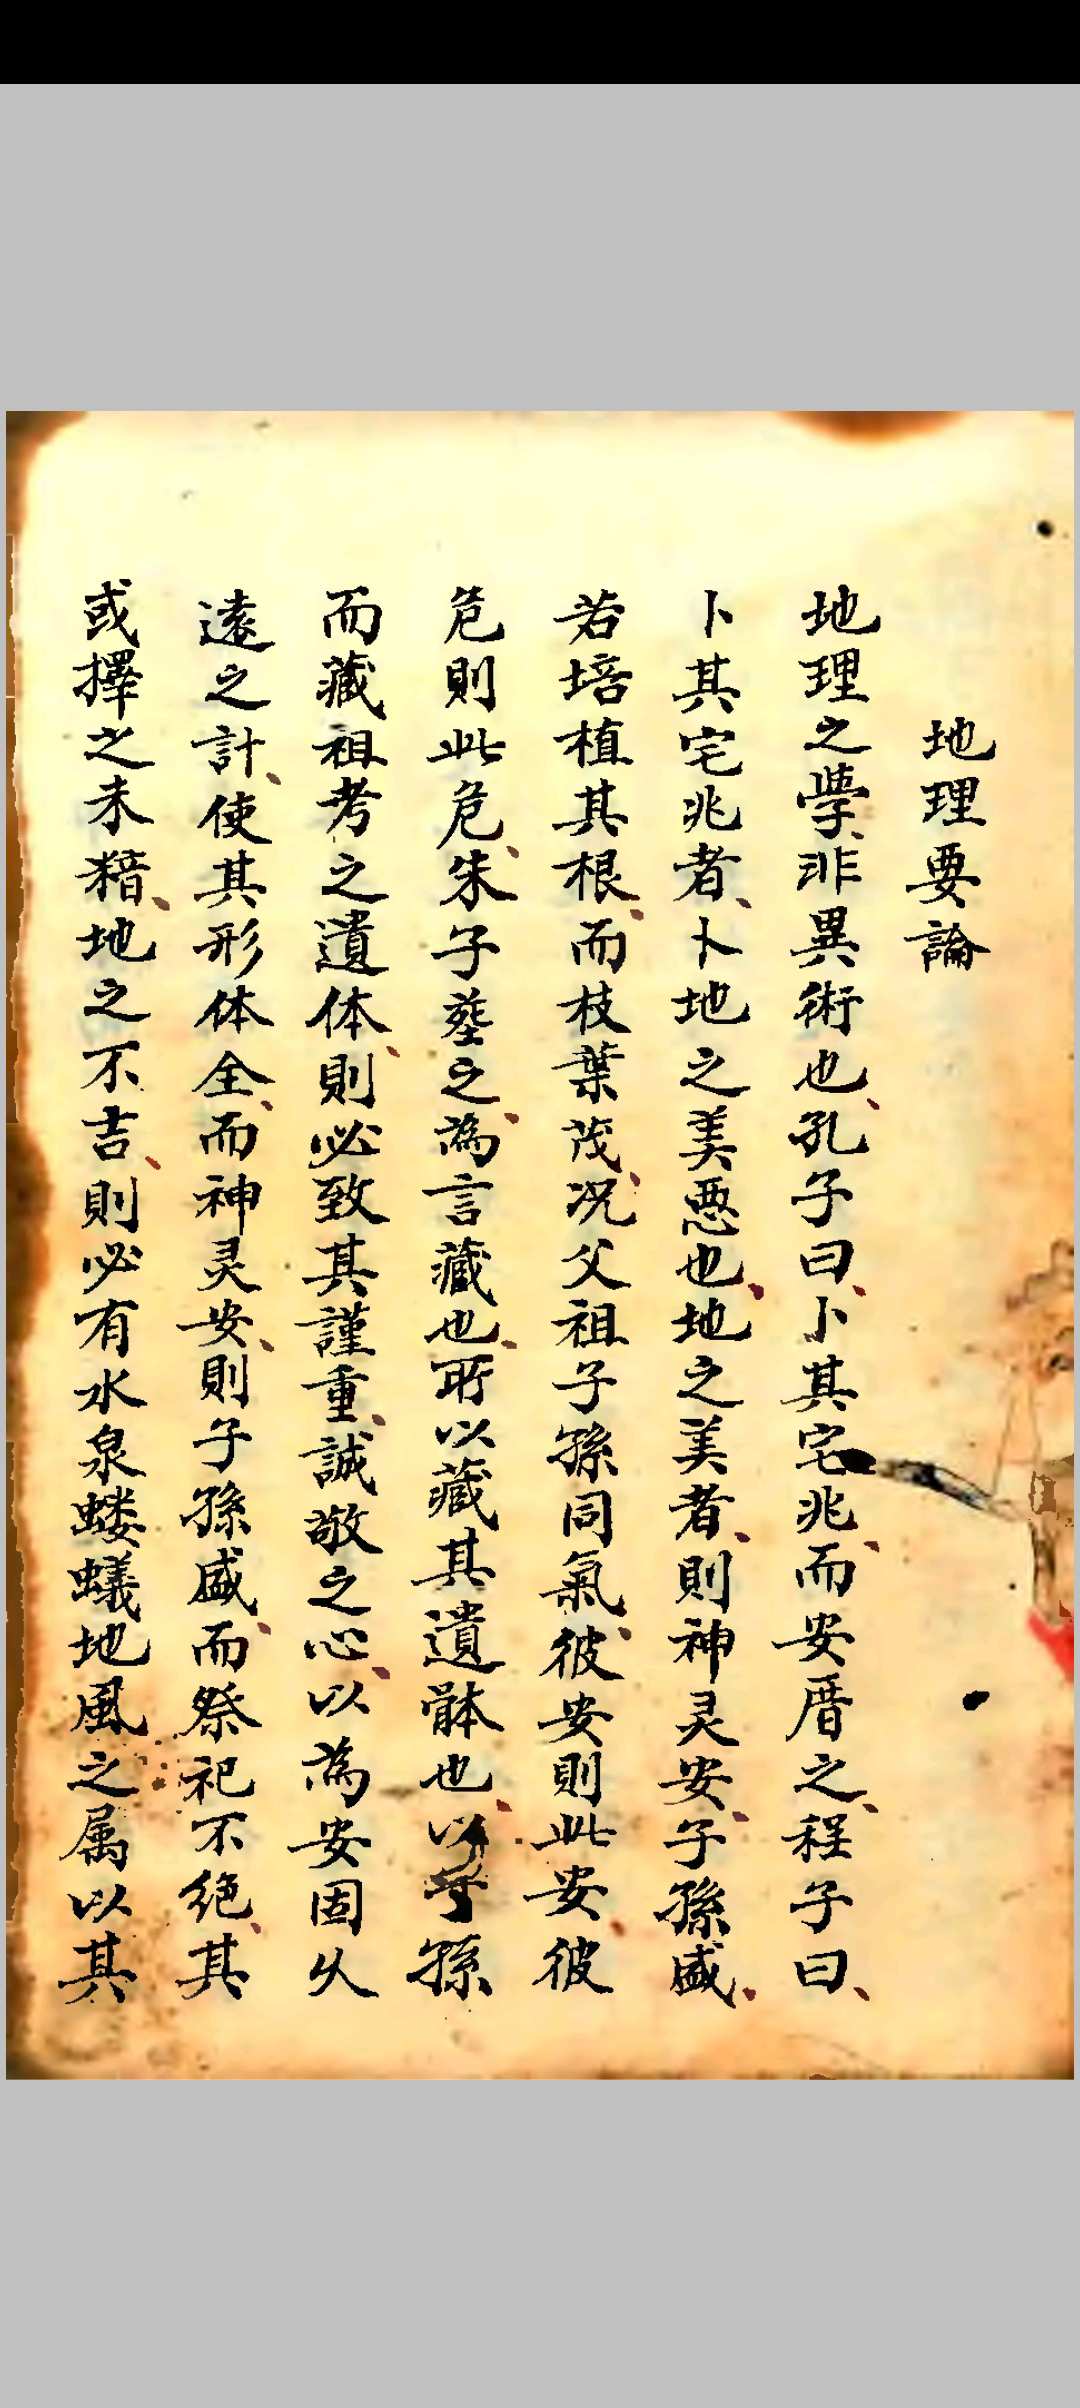 地理要論
地理之學、非異術也、孔子曰、卜其宅兆、而安厝之、程子曰、
卜其宅兆者、卜地之美悪也、地之美者、則神灵安、子孫盛、
若培植其根、而枝葉茂、况父祖子孫同氣、彼安則此安、彼
危則此危、朱子塟之、為言藏也、所以藏其遺骵也、以子孫
而藏祖考之遺体、則必致其謹重、誠敬之心、以為安固久
遠之計、使其形体全、而神灵安、則子孫盛、而祭祀不絶、其
或擇之未精、地之不吉、則必有水泉螻蟻地風之属以其